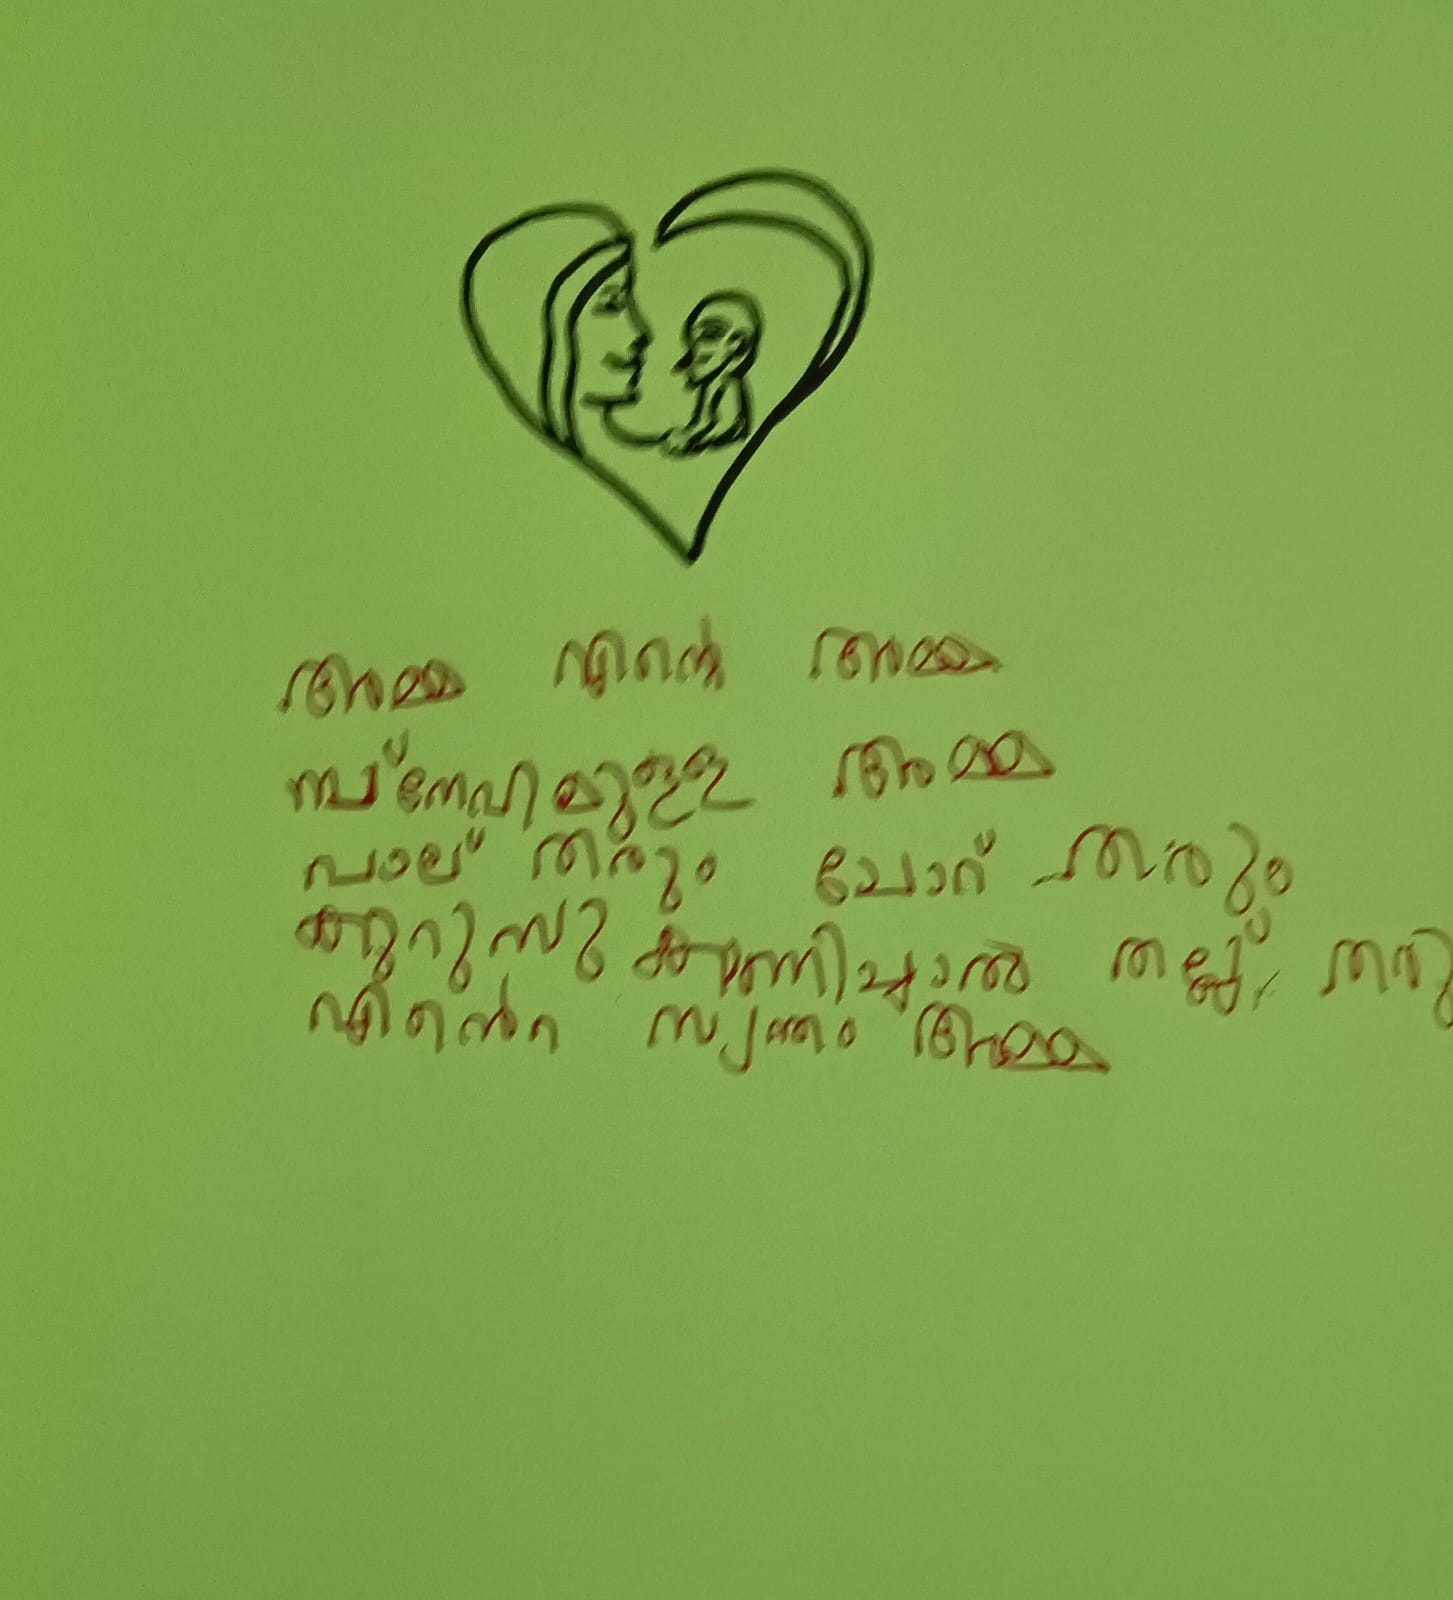 അമ്മ എന്റെ അമ്മ
സ്നേഹമുള്ള അമ്മ
പാല് തരും ചോറ് തരും
കുറുമ്പു കാണിച്ചാൽ തല്ല് തരു
എൻെറ സ്വന്തം അമ്മ